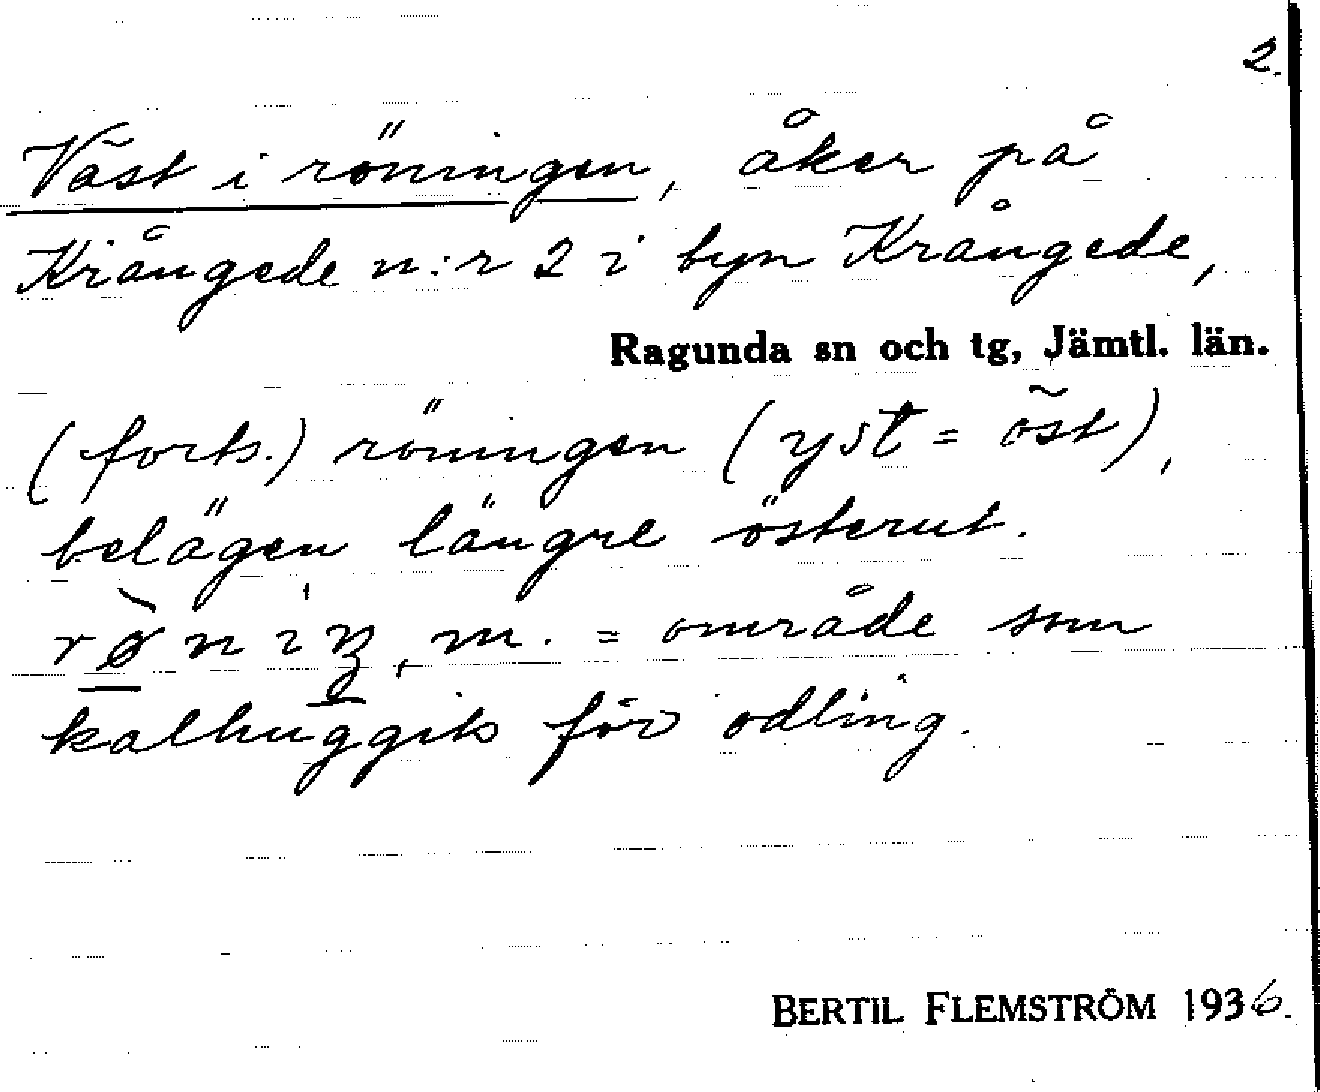 2.
Väst i röningen, åker på
Krångede n:r 2 i byn Krångede,
Ragunda sn och tg, Jämtl. län.
(forts.) röningen (yst = öst),
belägen längre österut.
rø̀niŋ, m. = område som
kalhuggits för odling.
BERTIL FLEMSTRÖM 1936.